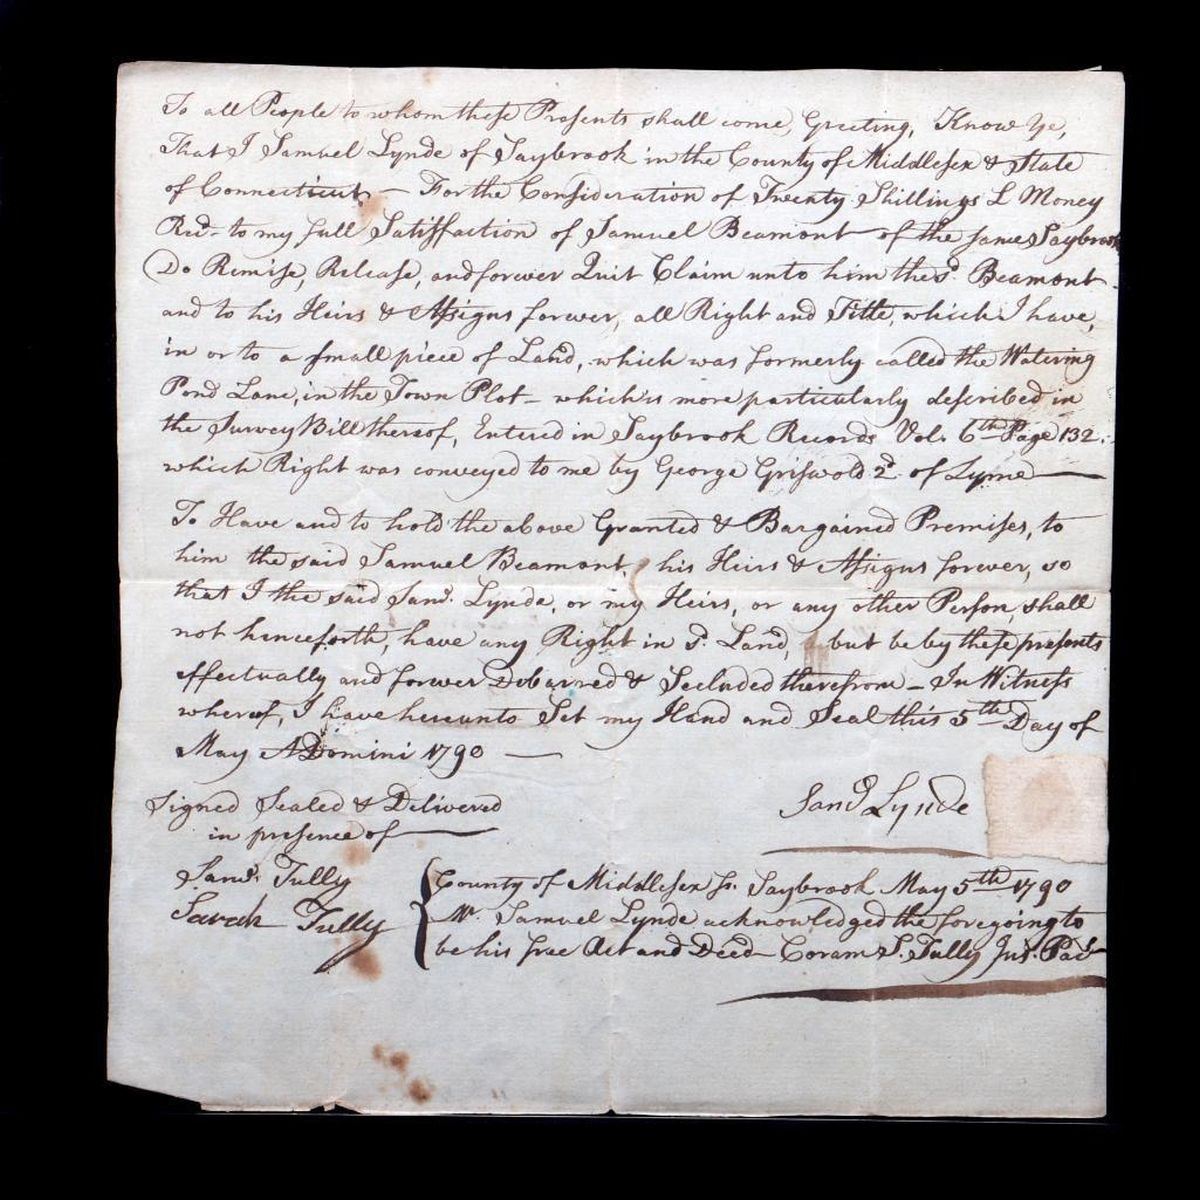 To all People to whom these Presents shall come, Greeting, Know Ye,
That I Samuel Lynde of Saybrook in the County of Middlesex & State
of Connecticut — For the Consideration of Twenty Shillings L Money
Recd. to my full Satisfaction of Samuel Beamont of the same Saybrook
Do Remise, Release, and forever Quit Claim unto him the sd. Beamont
and to his Heirs & Assigns forever, all Right and Title, which I have,
in or to a small piece of Land, which was formerly called the Watering
Pond Lane, in the Town Plot — which is more particularly described in
the Survey Bill thereof, Entered in Saybrook Records Vol. 6th Page 132.
which Right was conveyed to me by George Griswold 2d. of Lyme —
To Have and to hold the above Granted & Bargained Premises, to
him the said Samuel Beamont, his Heirs & Assigns forever, so
that I the said Saml. Lynde, or my Heirs, or any other Person, shall
not henceforth, have any Right in sd. Land, but be by these presents
effectually and forever Debarred & Secluded therefrom — In Witness
whereof, I have hereunto Set my Hand and Seal this 5th Day of
May A Domini 1790 —
Signed Sealed & Delivered
in presence of —
Saml. Lynde
Saml. Tully
Sarah Tully
County of Middlesex ss. Saybrook May 5th 1790
Mr. Samuel Lynde acknowledged the foregoing to
be his free Act and Deed — Coram S. Tully Jus. Pacs